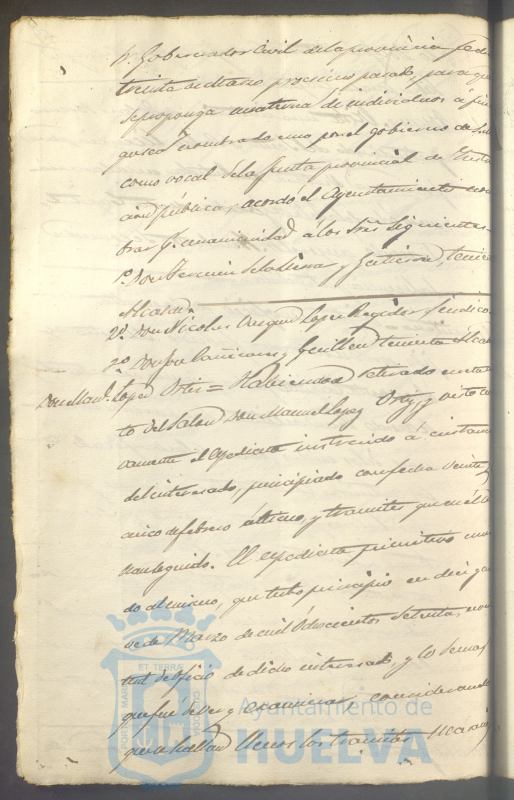 Sr. Gobernador Civil de la provincia fecha
treinta de Marzo proximo pasado, para que
se proponga una terna de individuos á fin
que sea nombrado uno por el gobierno de S.
como vocal de la Junta provincial de Instruc
cion pública, acordó el Ayuntamiento nom
brar por unanimidad á los Sres. siguientes.
1º Don Fermin de la Sierra y Gutierrez, teniente
Alcalde.
2º Don Nicolas Lopez Regidor Sindico
3º Don José y Guillen teniente Alcal
Don Manl. Lopez Ortiz = Habiendose retirado en este ac
to del Salon Don Manuel Lopez Ortiz, y visto nu
vamente el expediente instruido á instancia
del interesado, principiado con fecha veinte y
cinco de febrero último, y tramites que en él se
han seguido. El expediente primitivo uni
do al mismo, que tubo principio en diez y nue
ve de Marzo de mil ochocientos setenta,
de oficio de dicho interesado, y lo demas
que fué de ver y examinar, considerando
que se hallan llenos los tramites
ET TERRÆ
PORTUS MARIS
CUSTODIA
Ayuntamiento de
HUELVA